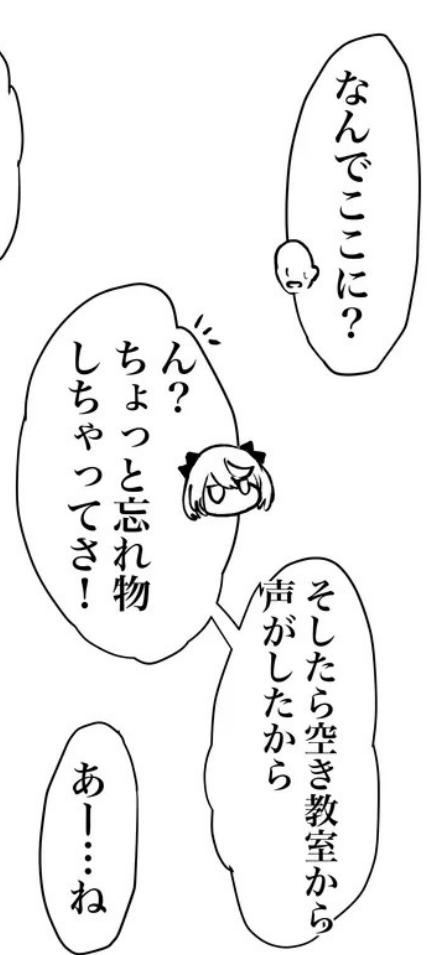 なんでここに？
ん？
ちょっと忘れ物
しちゃってさ！
そしたら空き教室から
声がしたから
あー…ね